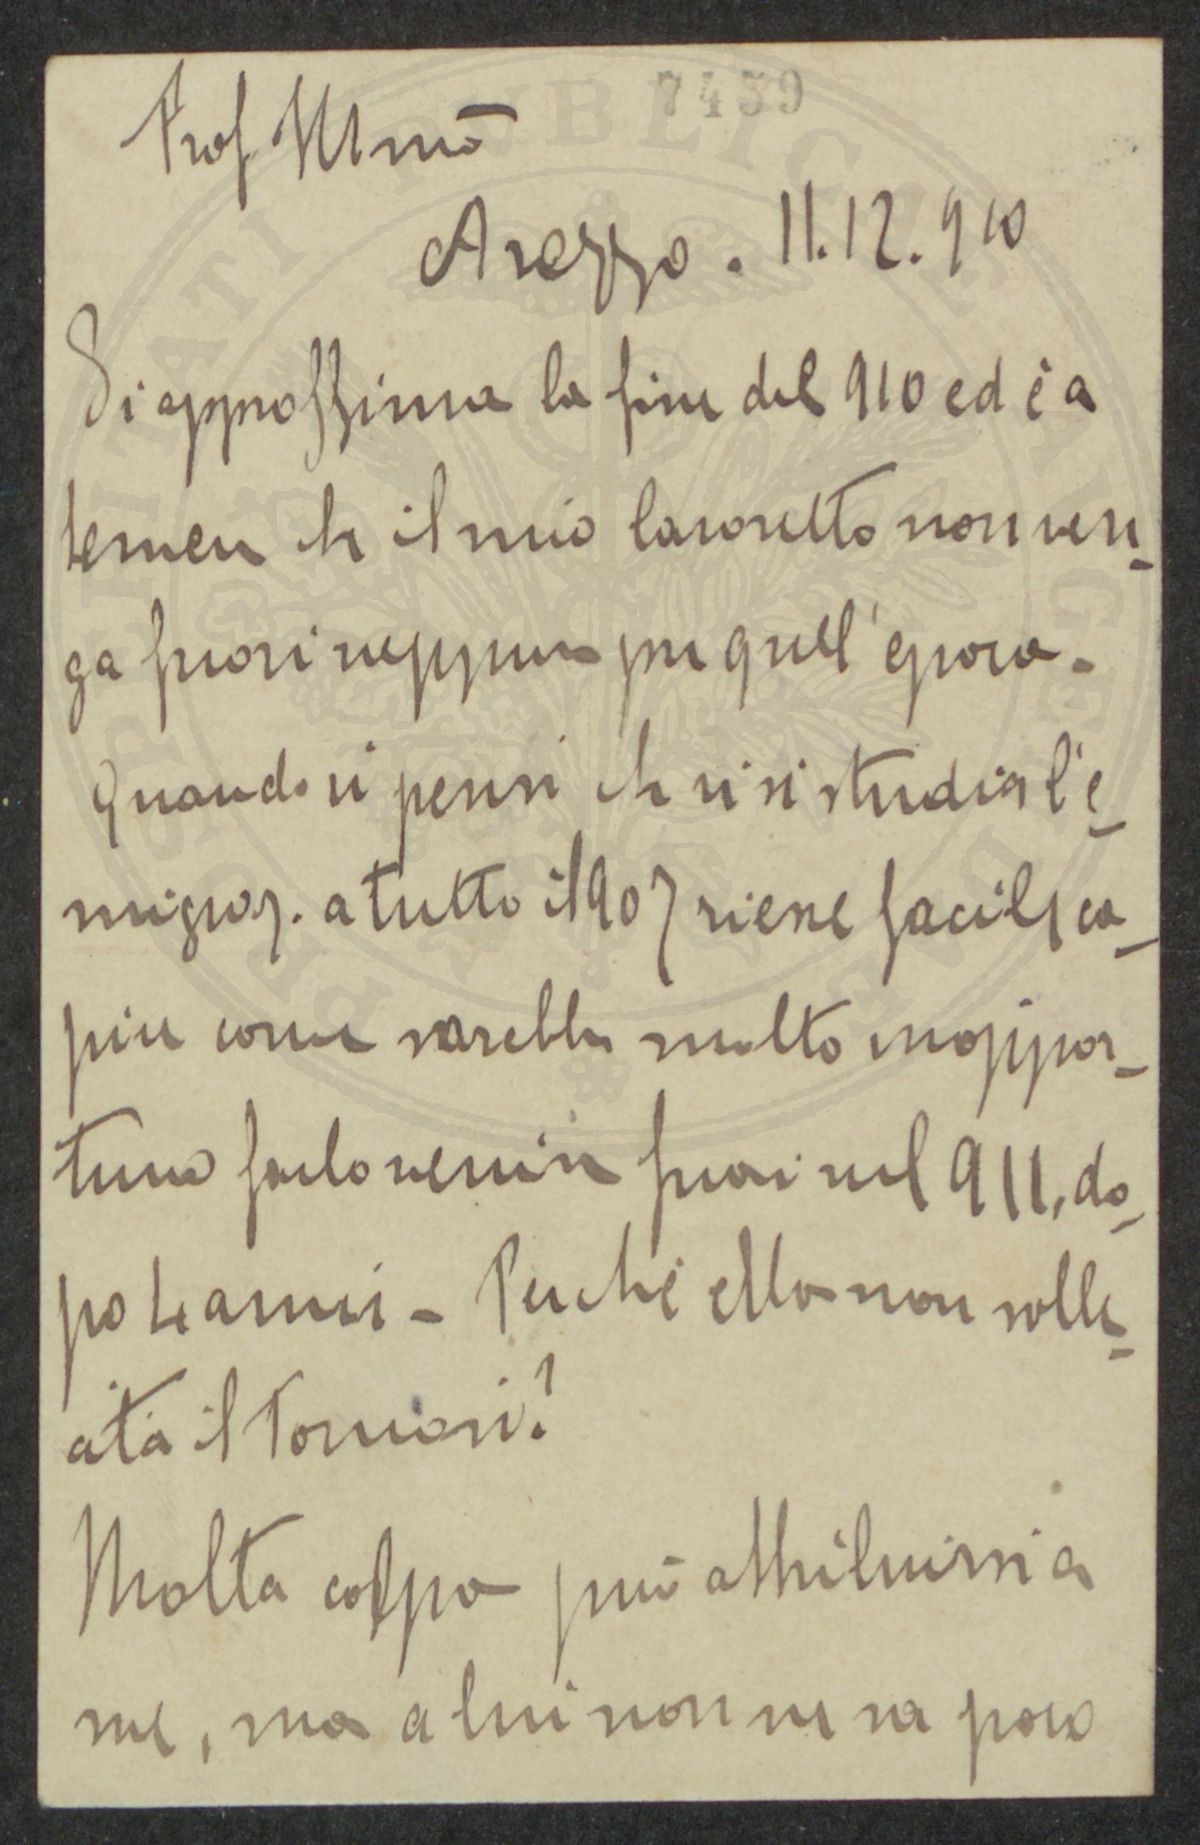 7459
Prof Illmo
Arezzo. 11.12.910
Si approssima la fine del 910 ed è a
temere che il mio lavoretto non ven-
ga fuori neppure per quell'epoca.
Quando si pensi che vi si studia l'e-
migraz. a tutto il 907 riesce facile ca-
pire come sarebbe molto inoppor-
tuno farlo venire fuori nel 911, do-
po 4 anni - Perché ella non solle-
cita il Tornari?
Molta colpa può attribuirsi a
me, ma a lui non ne va poca